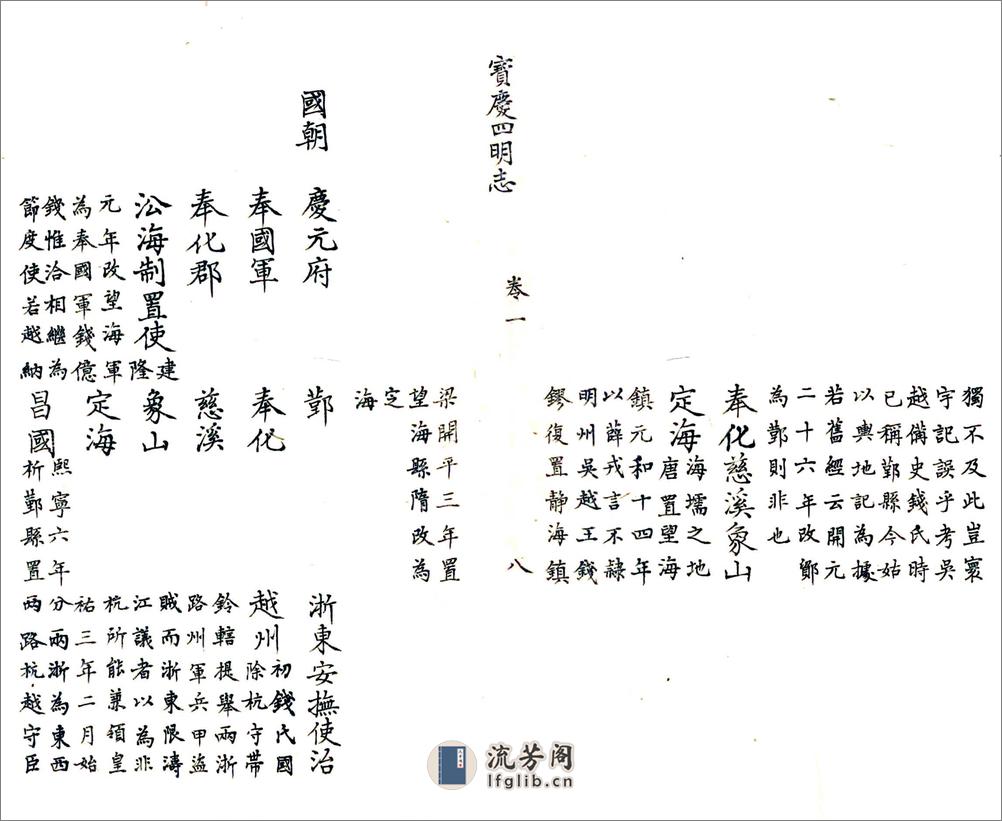 獨不及此豈寰
宇記誤乎考吳
越備史錢氏時
已稱鄞縣今始
以輿地記為據
若舊經云開元
二十六年改鄮
為鄞則非也
奉化慈溪象山
定海
海壖之地
唐置望海
鎮元和十四年
以薛戎言不隸
明州吳越王錢
鏐復置静海鎮
寶慶四明志
卷一
八
梁開平三年置
望海縣隋改為
定
海
國朝
慶元府
鄞
浙東安撫使治
奉國軍
奉化
越州
初錢氏國
除杭守帶
奉化郡
慈溪
鈐轄提舉兩浙
路州軍兵甲盜
沿海制置使
建
隆
象山
賊而浙東限濤
江議者以為非
元年改望海軍
為奉國軍錢億
定海
杭所能兼領皇
祐三年二月始
錢惟洽相繼為
節度使若越納
昌國
熙寧六年
析鄞縣置
分兩浙為東西
兩路杭越守臣
流芳阁
lfglib.cn